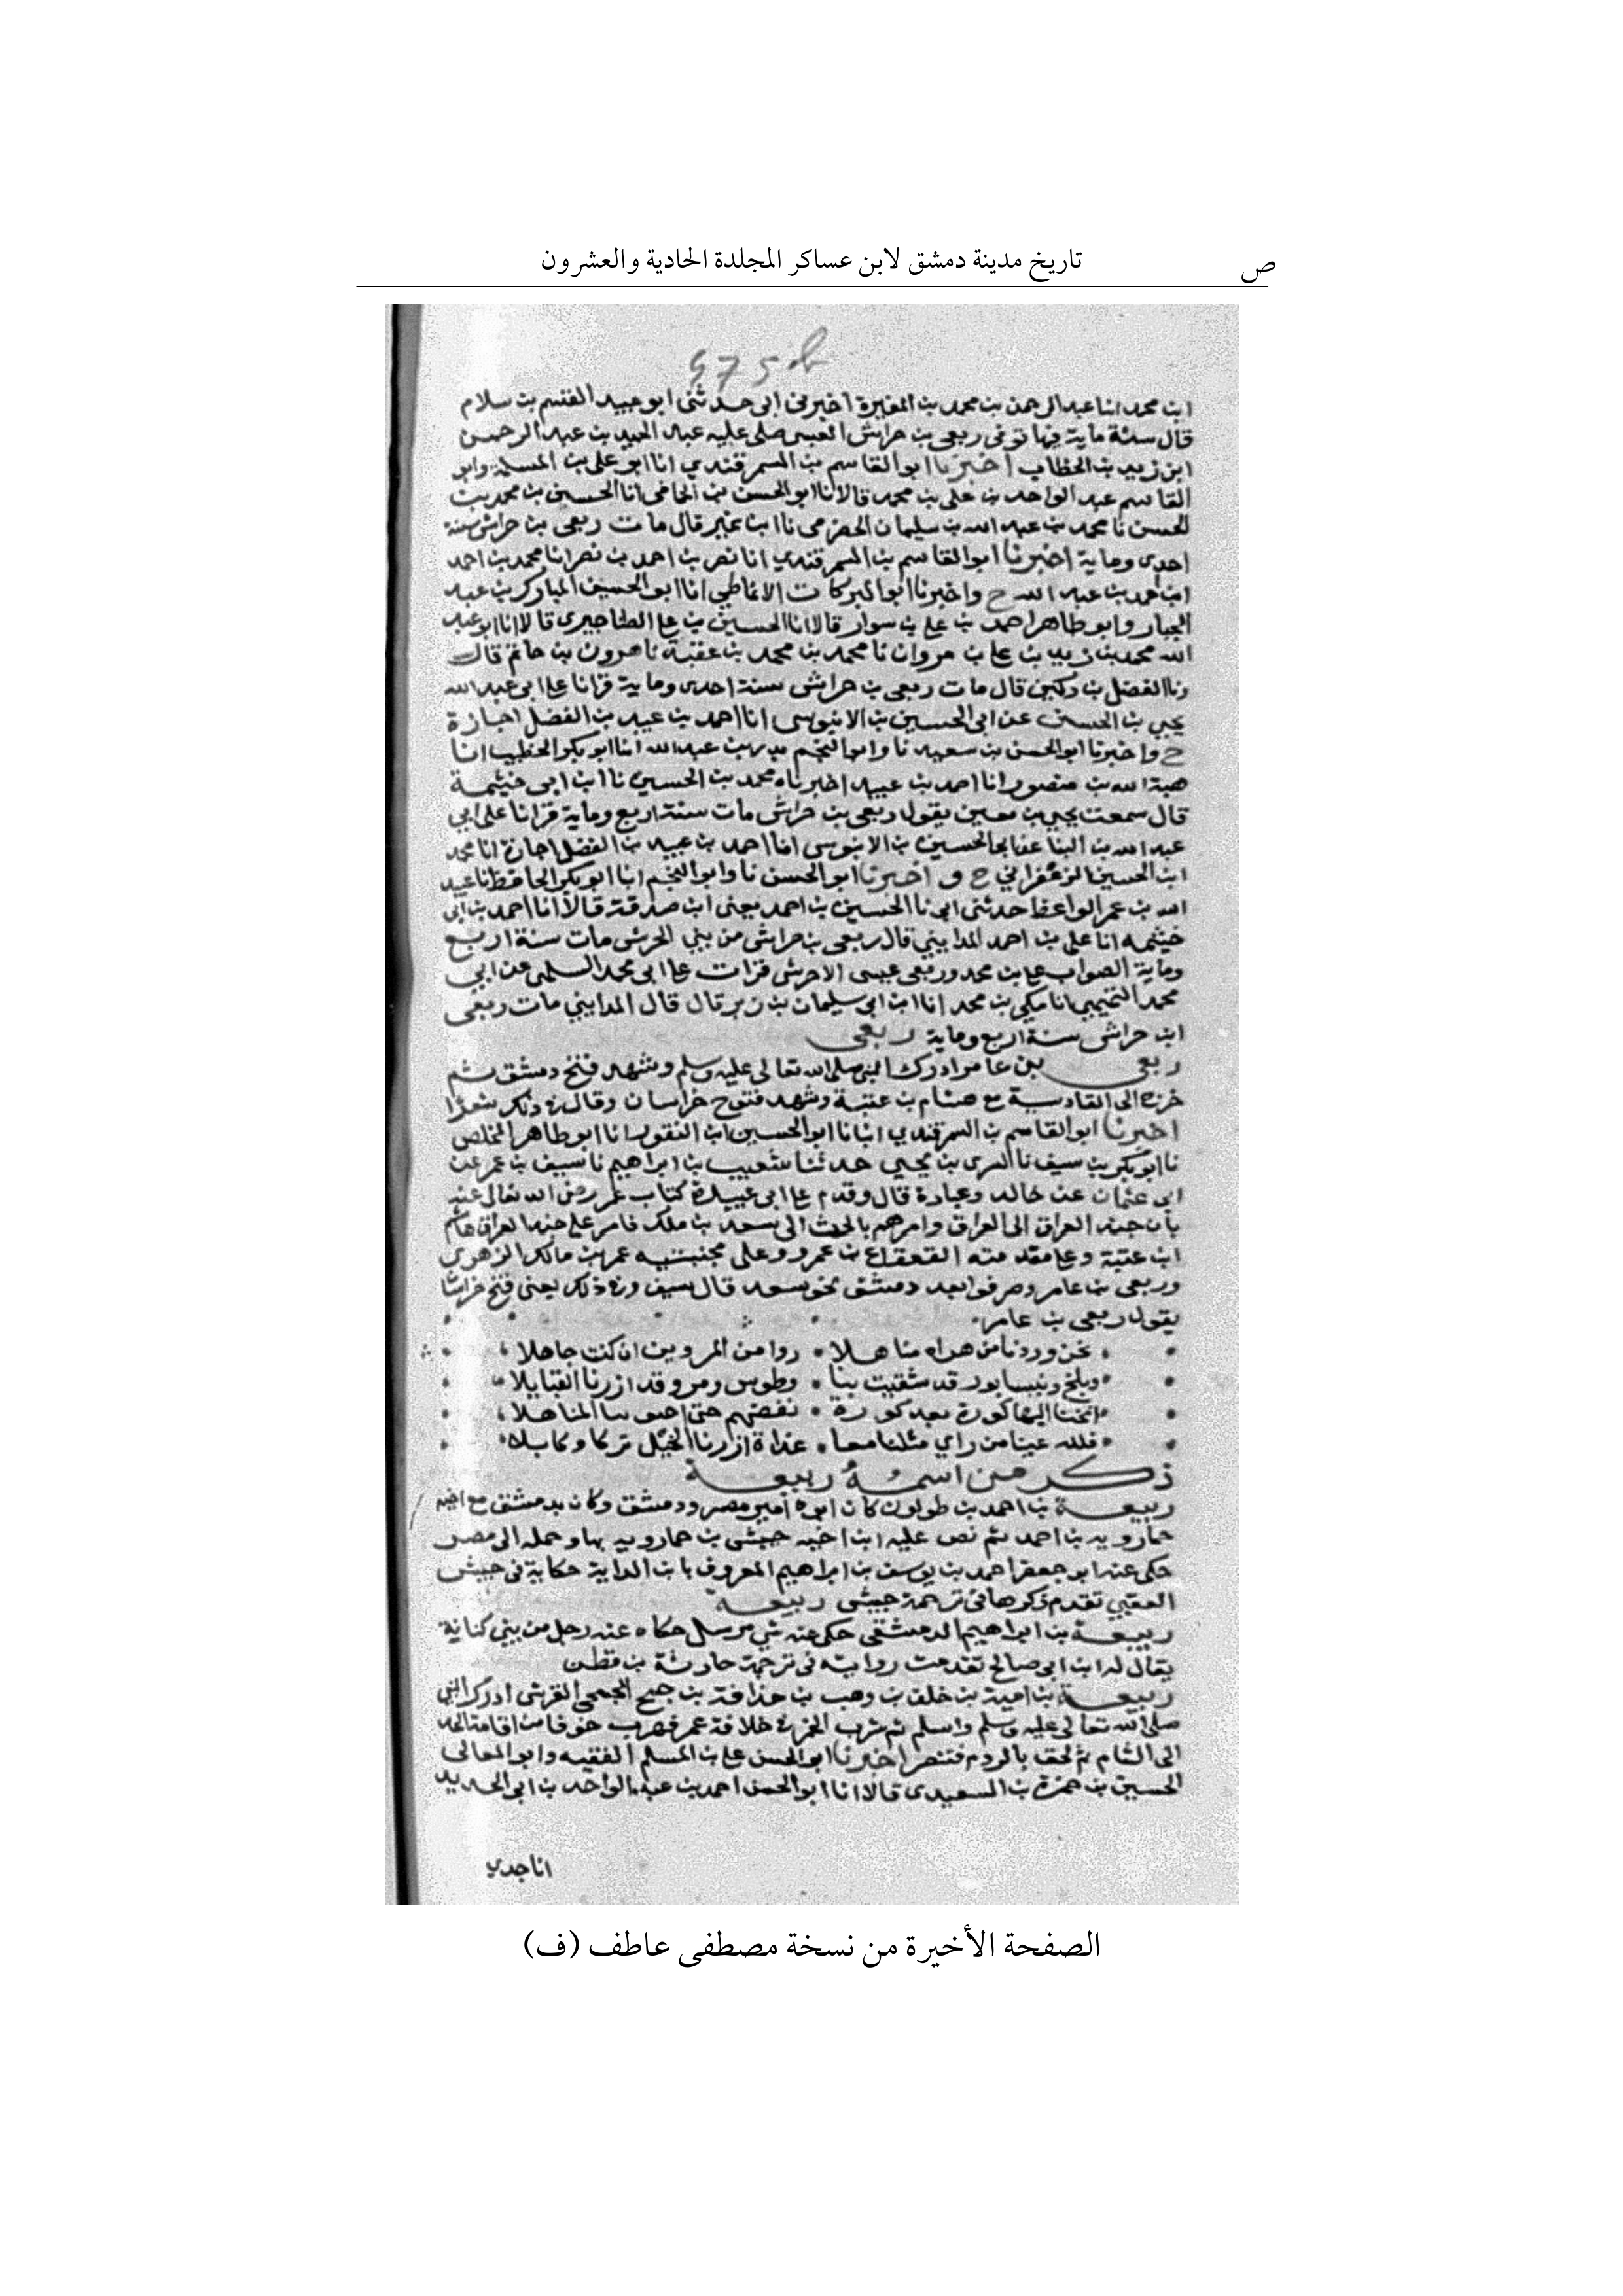 تاريخ مدينة دمشق لابن عساكر المجلدة الحادية والعشرون
ص
475 b
ابن محمد انا عبد الرحمن بن محمد بن المغيرة اخبرني ابي حدثني ابو عبيد القسم بن سلام
قال سنة ماية فيها توفي ربعي بن حراش العبسي صلى عليه عبد الحميد بن عبد الرحمن
ابن زيد بن الخطاب اخبرنا ابو القاسم بن السمرقندي انا ابو علي بن المسلمة وابو
القاسم عبد الواحد بن علي بن محمد قالا انا ابو الحسن بن الحمامي انا الحسين بن محمد بن
الحسن نا محمد بن عبد الله بن سليمان الحضرمي نا ابن نمير قال مات ربعي بن حراش سنة
احدى وماية اخبرنا ابو القاسم بن السمرقندي انا نصر بن احمد بن نصر انا محمد بن احمد
ابن احمد بن عبد الله ح واخبرنا ابو البركات الانماطي انا ابو الحسين المبارك بن عبد
الجبار وابو طاهر احمد بن علي بن سوار قالا انا الحسين بن علي الطناجيري قالا انا ابو عبد
الله محمد بن زيد بن علي بن مروان نا محمد بن محمد بن عقبة نا هرون بن حاتم قال
نا الفضل بن دكين قال مات ربعي بن حراش سنة احدى وماية قرانا علي ابي عبد الله
يحيي بن الحسن عن ابي الحسين بن الابنوسي انا احمد بن عبيد بن الفضل اجازة
ح واخبرنا ابو الحسن بن سعيد نا وابو النجم بدر بن عبد الله انا ابو بكر الخطيب انا
هبة الله بن منصور انا احمد بن عبيد اخبرناه محمد بن الحسين نا ابن ابي خيثمة
قال سمعت يحيي بن معين يقول ربعي بن حراش مات سنة اربع وماية قرانا على ابي
عبد الله بن البنا عن ابي الحسين بن الابنوسي انا احمد بن عبيد بن الفضل اجازة انا محمد
ابن الحسين الزعفراني ح واخبرنا ابو الحسن نا وابو النجم انا ابو بكر الحافظ نا عبيد
الله بن عمر الواعظ حدثني ابي نا الحسين بن احمد يعني ابن صدقة قالا انا احمد بن ابي
خيثمه انا علي بن احمد المدايني قال ربعي بن حراش من بني الحرش مات سنة اربع
وماية الصواب علي بن محمد وربعي عبسى الاحرش قرات علي ابي محمد السلمي عن ابي
محمد التميمي انا مكي بن محمد انا ابن ابي سليمان بن زبر قال قال المدايني مات ربعي
ابن حراش سنة اربع وماية ربعي
ربعي بن عامر ادرك النبي صلى الله تعالى عليه وسلم وشهد فتح دمشق ثم
خرج الى القادسية مع هشام بن عتبة وشهد فتوح خراسان وقال في ذلك شعرا
اخبرنا ابو القاسم بن السمرقندي انبانا ابو الحسين ابن النقور انا ابو طاهر المخلص
نا ابو بكر بن سيف نا السري بن يحيي حدثنا شعيب بن ابراهيم نا سيف بن عمر عن
ابي عثمان عن خالد وعبادة قال وقدم علي ابي عبيدة كتاب عمر رضي الله تعالى عنه
بان جند العراق الى العراق وامرهم بالحث الى سعد بن ملك فامر علي جند العراق هاشم
ابن عتبة وعلي مقدمته القعقاع بن عمرو وعلى مجنبتيه عمر بن مالك الزهري
وربعي بن عامر وصرفوا بعد دمشق نحو سعد قال سيف وفي ذلك يعني فتح خراسان
يقول ربعي بن عامر
نحن وردنا من هراه مناهلا روا من المروين ان كنت جاهلا
وبلخ ونيسابور قد شقيت بنا وطوس ومرو قد ازرنا القبايلا
انخنا اليها كورة بعد كورة نفضهم حتى احتوينا المناهلا
فلله عينا من راي مثلنا معا غداة ازرنا الخيل تركا وكابلا
ذكر من اسمه ربيعة
ربيعة بن احمد بن طولون كان ابوه امير مصر ودمشق وكان بدمشق مع اخيه
خمارويه بن احمد ثم نص عليه ابن اخيه جيشي بن خمارويه بها وحمله الى مصر
حكى عنه ابو جعفر احمد بن يوسف بن ابراهيم المعروف بابن الداية حكاية في جيش
تقدم ذكرها في ترجمة جيشي ربيعة
ربيعة بن ابراهيم الدمشقي حكى عنه شي مرسل حكاه عنه رجل من بني كنانة
يقال له ابن ابي صالح تقدمت روايته في ترجمة حارثة بن قطن
ربيعة بن امية بن خلف بن وهب بن حذافة بن جمح الجمحي القرشي ادرك النبي
صلى الله تعالى عليه وسلم واسلم ثم شرب الخمر في خلافة عمر فهرب خوفا من اقامة الحد
الى الشام ثم لحق بالروم فتنصر اخبرنا ابو الحسن علي بن المسلم الفقيه وابو المعالي
الحسين بن حمزة بن السعيدي قالا انا ابو الحسن احمد بن عبد الواحد بن ابي الحديد
انا جدي
الصفحة الأخيرة من نسخة مصطفى عاطف (ف)